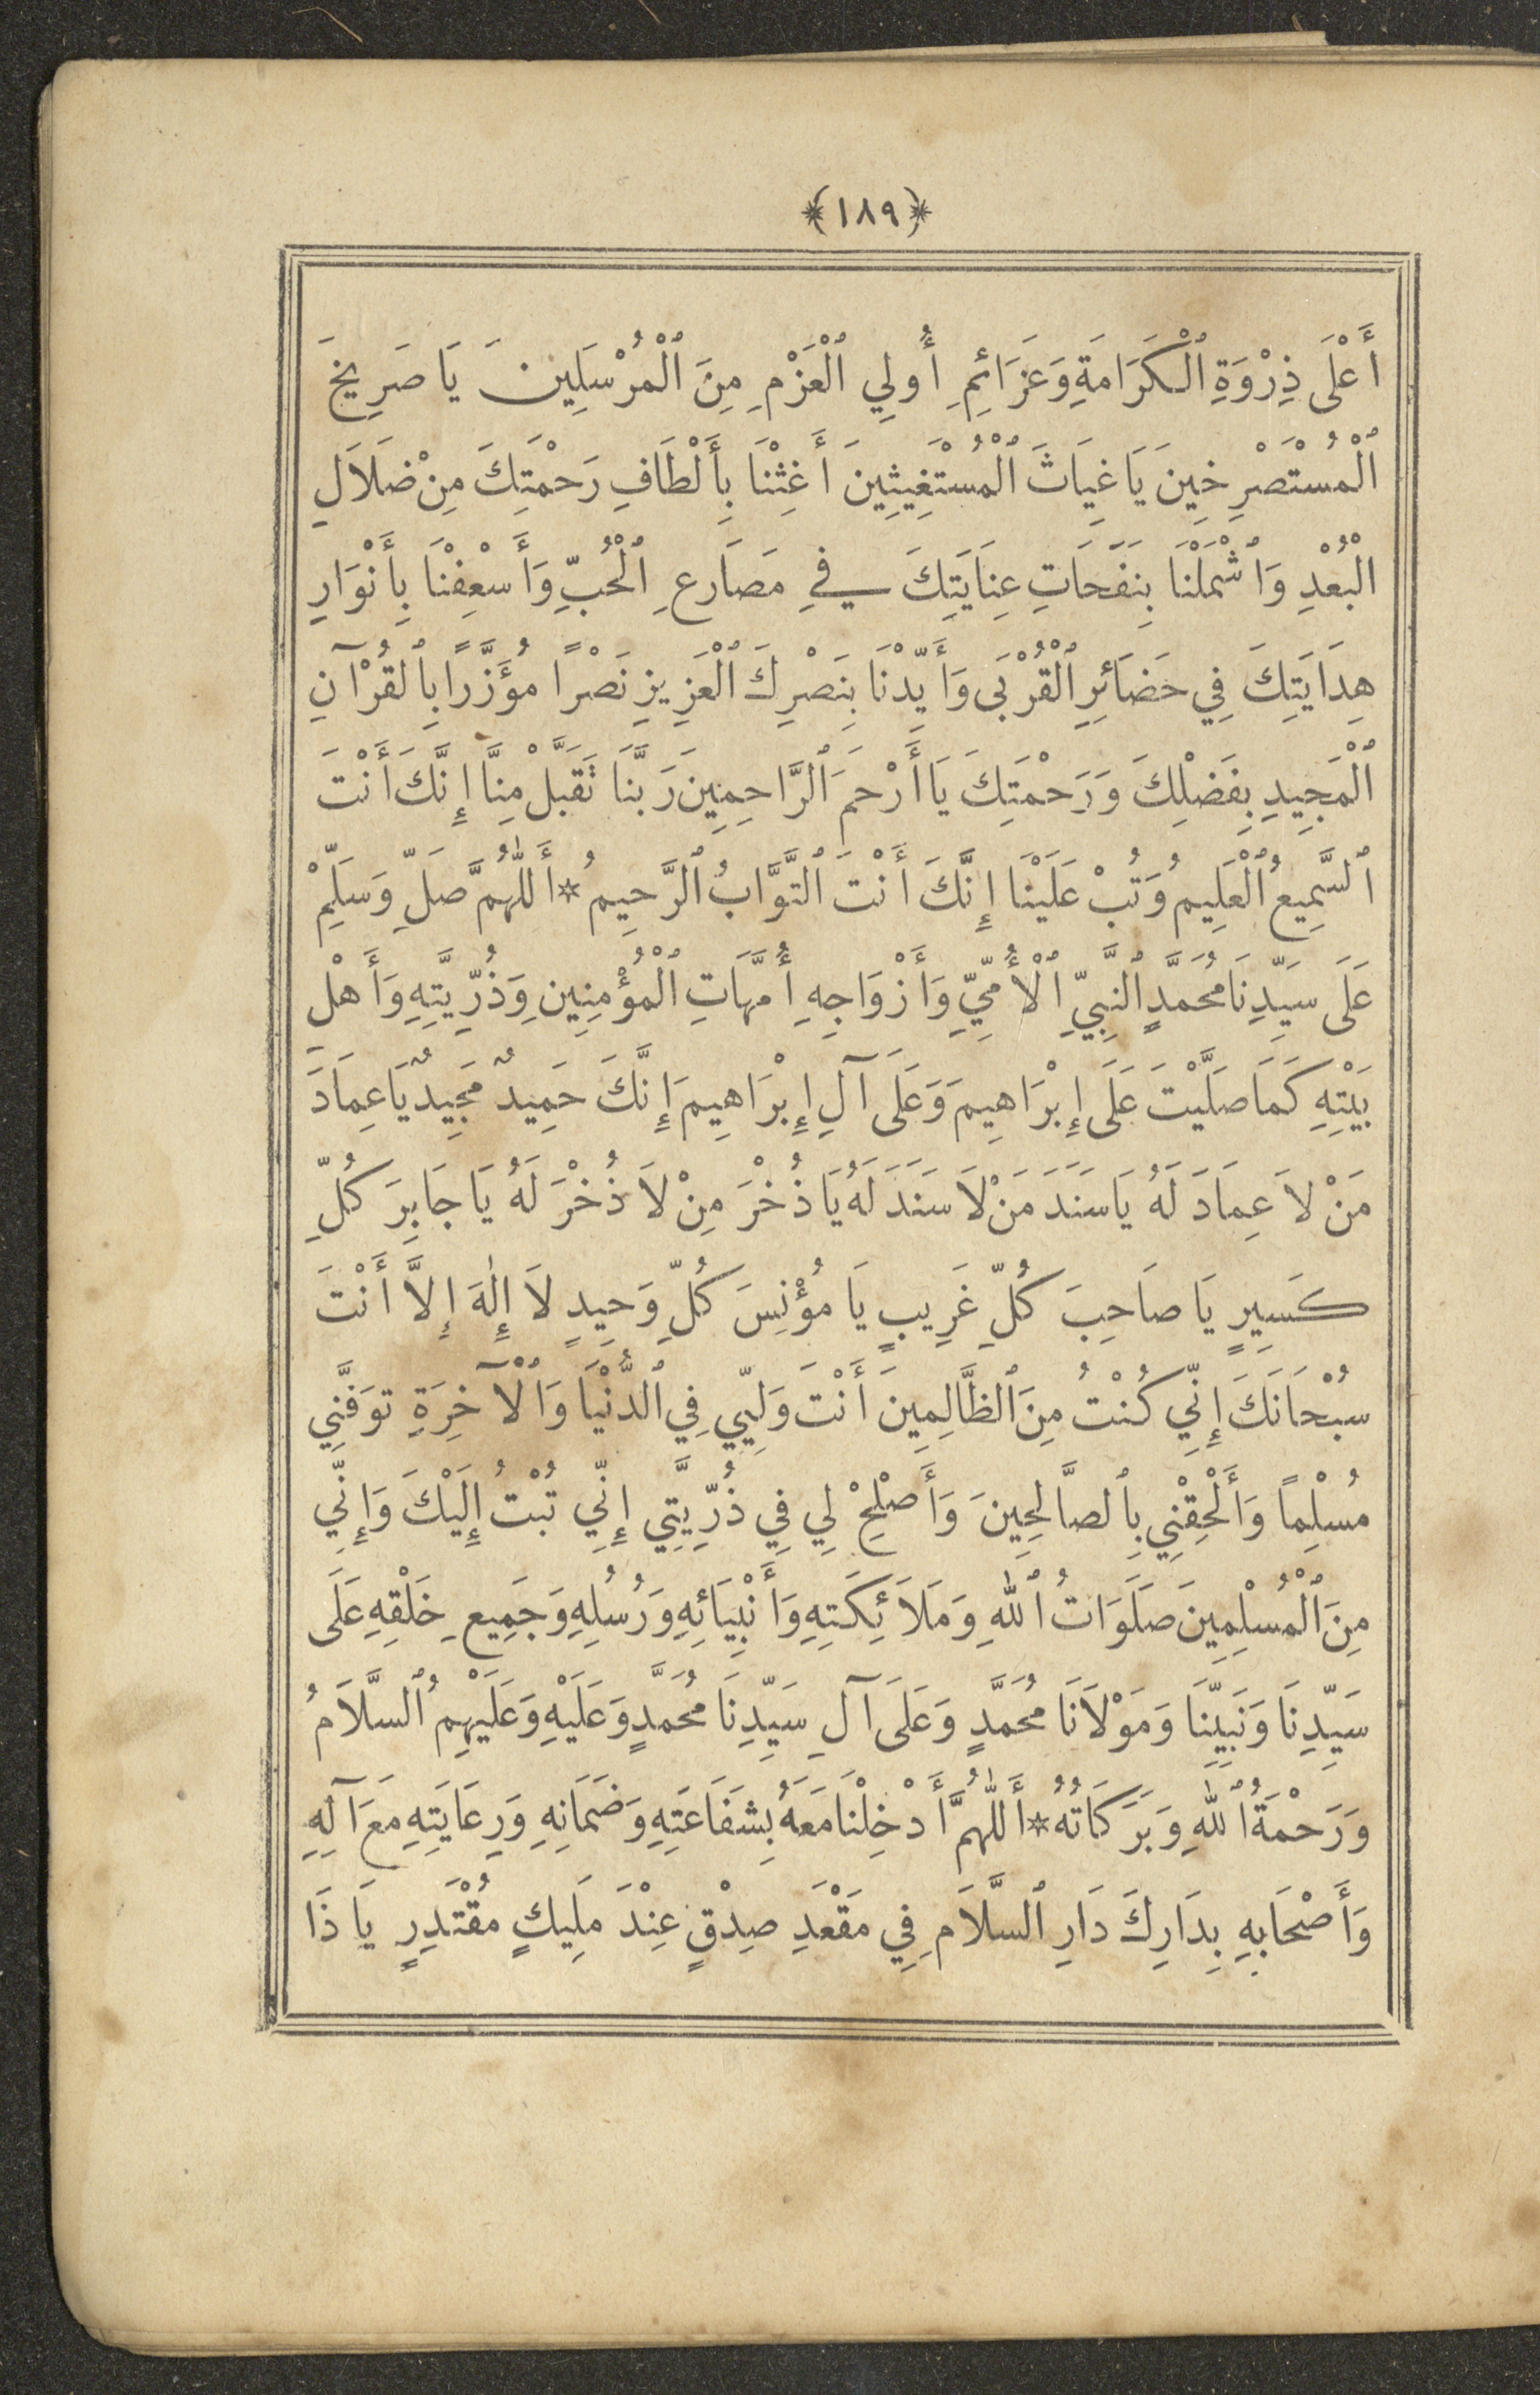 ﴿١٨٩﴾
أَعْلَى ذِرْوَةِ ٱلْكَرَامَةِ وَعَزَائِمِ أُولِي ٱلْعَزْمِ مِنَ ٱلْمُرْسَلِينَ يَا صَرِيخَ
ٱلْمُسْتَصْرِخِينَ يَا غِيَاثَ ٱلْمُسْتَغِيثِينَ أَغِثْنَا بِأَلْطَافِ رَحْمَتِكَ مِنْ ضَلَالِ
ٱلْبُعْدِ وَٱشْمَلْنَا بِنَفَحَاتِ عِنَايَتِكَ فِي مَصَارِعِ ٱلْحُبِّ وَأَسْعِفْنَا بِأَنْوَارِ
هِدَايَتِكَ فِي حَضَائِرِ ٱلْقُرْبَى وَأَيِّدْنَا بِنَصْرِكَ ٱلْعَزِيزِ نَصْرًا مُؤَزَّرًا بِٱلْقُرْآنِ
ٱلْمَجِيدِ بِفَضْلِكَ وَرَحْمَتِكَ يَا أَرْحَمَ ٱلرَّاحِمِينَ رَبَّنَا تَقَبَّلْ مِنَّا إِنَّكَ أَنْتَ
ٱلسَّمِيعُ ٱلْعَلِيمُ وَتُبْ عَلَيْنَا إِنَّكَ أَنْتَ ٱلتَّوَّابُ ٱلرَّحِيمُ * أَللّٰهُمَّ صَلِّ وَسَلِّمْ
عَلَى سَيِّدِنَا مُحَمَّدٍ ٱلنَّبِيِّ ٱلْأُمِّيِّ وَأَزْوَاجِهِ أُمَّهَاتِ ٱلْمُؤْمِنِينَ وَذُرِّيَّتِهِ وَأَهْلِ
بَيْتِهِ كَمَا صَلَّيْتَ عَلَى إِبْرَاهِيمَ وَعَلَى آلِ إِبْرَاهِيمَ إِنَّكَ حَمِيدٌ مَجِيدٌ يَا عِمَادَ
مَنْ لَا عِمَادَ لَهُ يَا سَنَدَ مَنْ لَا سَنَدَ لَهُ يَا ذُخْرَ مِنْ لَا ذُخْرَ لَهُ يَا جَابِرَ كُلِّ
كَسِيرٍ يَا صَاحِبَ كُلِّ غَرِيبٍ يَا مُؤْنِسَ كُلِّ وَحِيدٍ لَا إِلٰهَ إِلَّا أَنْتَ
سُبْحَانَكَ إِنِّي كُنْتُ مِنَ ٱلظَّالِمِينَ أَنْتَ وَلِيِّي فِي ٱلدُّنْيَا وَٱلْآخِرَةِ تَوَفَّنِي
مُسْلِمًا وَأَلْحِقْنِي بِٱلصَّالِحِينَ وَأَصْلِحْ لِي فِي ذُرِّيَّتِي إِنِّي تُبْتُ إِلَيْكَ وَإِنِّي
مِنَ ٱلْمُسْلِمِينَ صَلَوَاتُ ٱللهِ وَمَلَائِكَتِهِ وَأَنْبِيَائِهِ وَرُسُلِهِ وَجَمِيعِ خَلْقِهِ عَلَى
سَيِّدِنَا وَنَبِيِّنَا وَمَوْلَانَا مُحَمَّدٍ وَعَلَى آلِ سَيِّدِنَا مُحَمَّدٍ وَعَلَيْهِ وَعَلَيْهِمُ ٱلسَّلَامُ
وَرَحْمَةُ ٱللهِ وَبَرَكَاتُهُ * أَللّٰهُمَّ أَدْخِلْنَا مَعَهُ بِشَفَاعَتِهِ وَضَمَانِهِ وَرِعَايَتِهِ مَعَ آلِهِ
وَأَصْحَابِهِ بِدَارِكَ دَارِ ٱلسَّلَامِ فِي مَقْعَدِ صِدْقٍ عِنْدَ مَلِيكٍ مُقْتَدِرٍ يَا ذَا